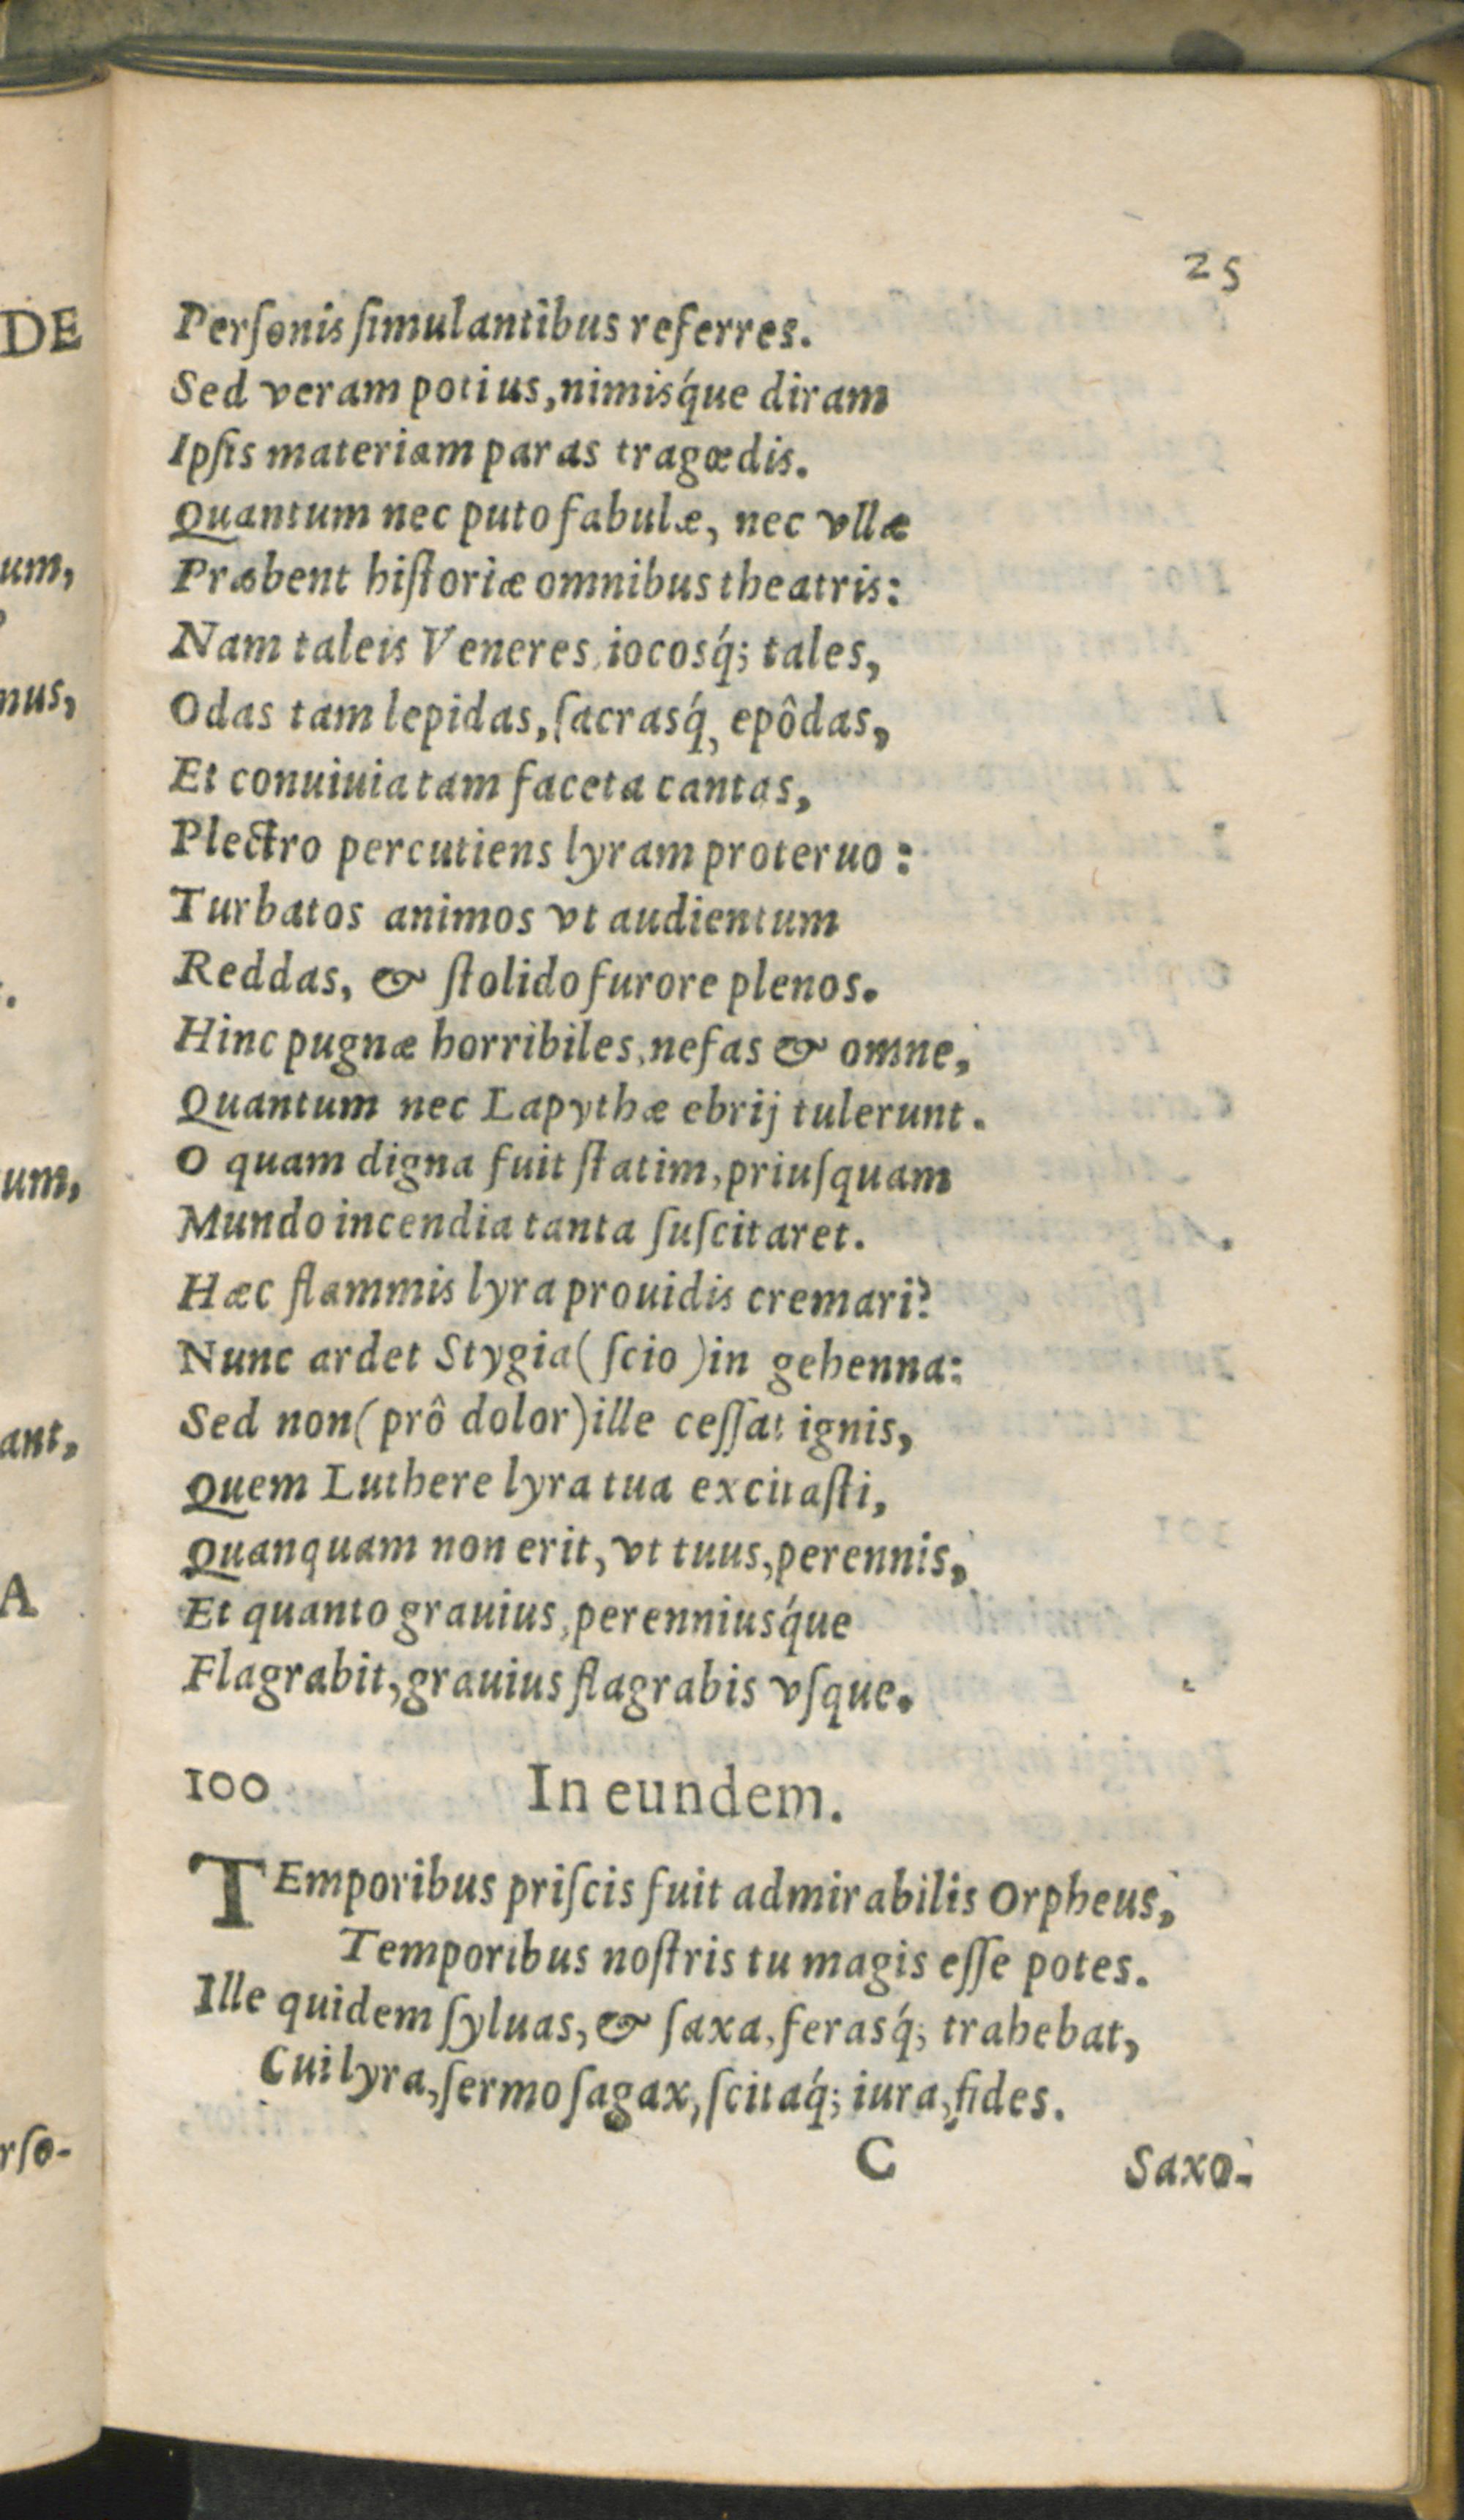 25
Perſonis ſimulantibus referres.
Sed veram potius, nimisq́ue diram
Ipſis materiam paras tragœdis.
Quantum nec puto fabulæ, nec vllæ
Præbent hiſtoriæ omnibus theatris:
Nam taleis Veneres, iocosq́; tales,
Odas tam lepidas, ſacrasq́, epôdas,
Et conuiuia tam faceta cantas,
Plectro percutiens lyram proteruo:
Turbatos animos vt audientum
Reddas, & ſtolido furore plenos.
Hinc pugnæ horribiles, nefas & omne,
Quantum nec Lapythæ ebrij tulerunt.
O quam digna fuit ſtatim, priuſquam
Mundo incendia tanta ſuſcitaret.
Hæc flammis lyra prouidis cremari?
Nunc ardet Stygia (ſcio) in gehenna:
Sed non (prô dolor) ille ceſſat ignis,
Quem Luthere lyra tua excitaſti,
Quanquam non erit, vt tuus, perennis,
Et quanto grauius, perenniusq́ue
Flagrabit, grauius flagrabis vſque.
100 In eundem.
TEmporibus priſcis fuit admirabilis Orpheus,
Temporibus noſtris tu magis eſſe potes.
Ille quidem ſyluas, & ſaxa, ferasq́; trahebat,
Cui lyra, ſermo ſagax, ſcitaq́; iura, fides.
C Saxo-
DE
um,
nus,
um,
ant,
A
rſo-